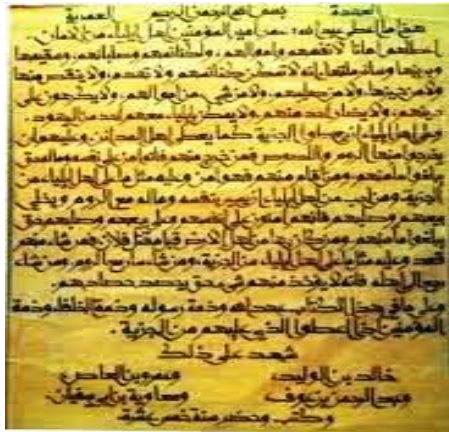 العهدة بسم الله الرحمن الرحيم العمرية
هذا ما أعطى عبد الله عمر أمير المؤمنين أهل إيلياء من الأمان.
أعطاهم أمانا لأنفسهم وأموالهم، ولكنائسهم وصلبانهم، وسقيمها
وبريئها وسائر ملتها، أنه لا تسكن كنائسهم ولا تهدم، ولا ينتقص منها
ولا من حيزها، ولا من صليبهم، ولا من شيء من أموالهم، ولا يكرهون على
دينهم، ولا يضار أحد منهم، ولا يسكن بإيلياء معهم أحد من اليهود.
وعلى أهل إيلياء أن يعطوا الجزية كما يعطي أهل المدائن، وعليهم أن
يخرجوا منها الروم واللصوص فمن خرج منهم فإنه آمن على نفسه وماله حتى
يبلغوا مأمنهم، ومن أقام منهم فهو آمن، وعليه مثل ما على أهل إيلياء من
الجزية، ومن أحب من أهل إيلياء أن يسير بنفسه وماله مع الروم ويخلي
بيعهم وصلبهم فإنهم آمنون على أنفسهم وعلى بيعهم وصلبهم حتى
يبلغوا مأمنهم، ومن كان بها من أهل الأرض قبل مقتل فلان فمن شاء منهم
قعد وعليه مثل ما على أهل إيلياء من الجزية، ومن شاء سار مع الروم، ومن شاء
رجع إلى أهله فإنه لا يؤخذ منهم شيء حتى يحصد حصادهم.
وعلى ما في هذا الكتاب عهد الله وذمة رسوله وذمة الخلفاء وذمة
المؤمنين إذا أعطوا الذي عليهم من الجزية.
شهد على ذلك
خالد بن الوليد، وعمرو بن العاص،
وعبد الرحمن بن عوف، ومعاوية بن أبي سفيان.
وكتب وحضر سنة خمس عشرة.